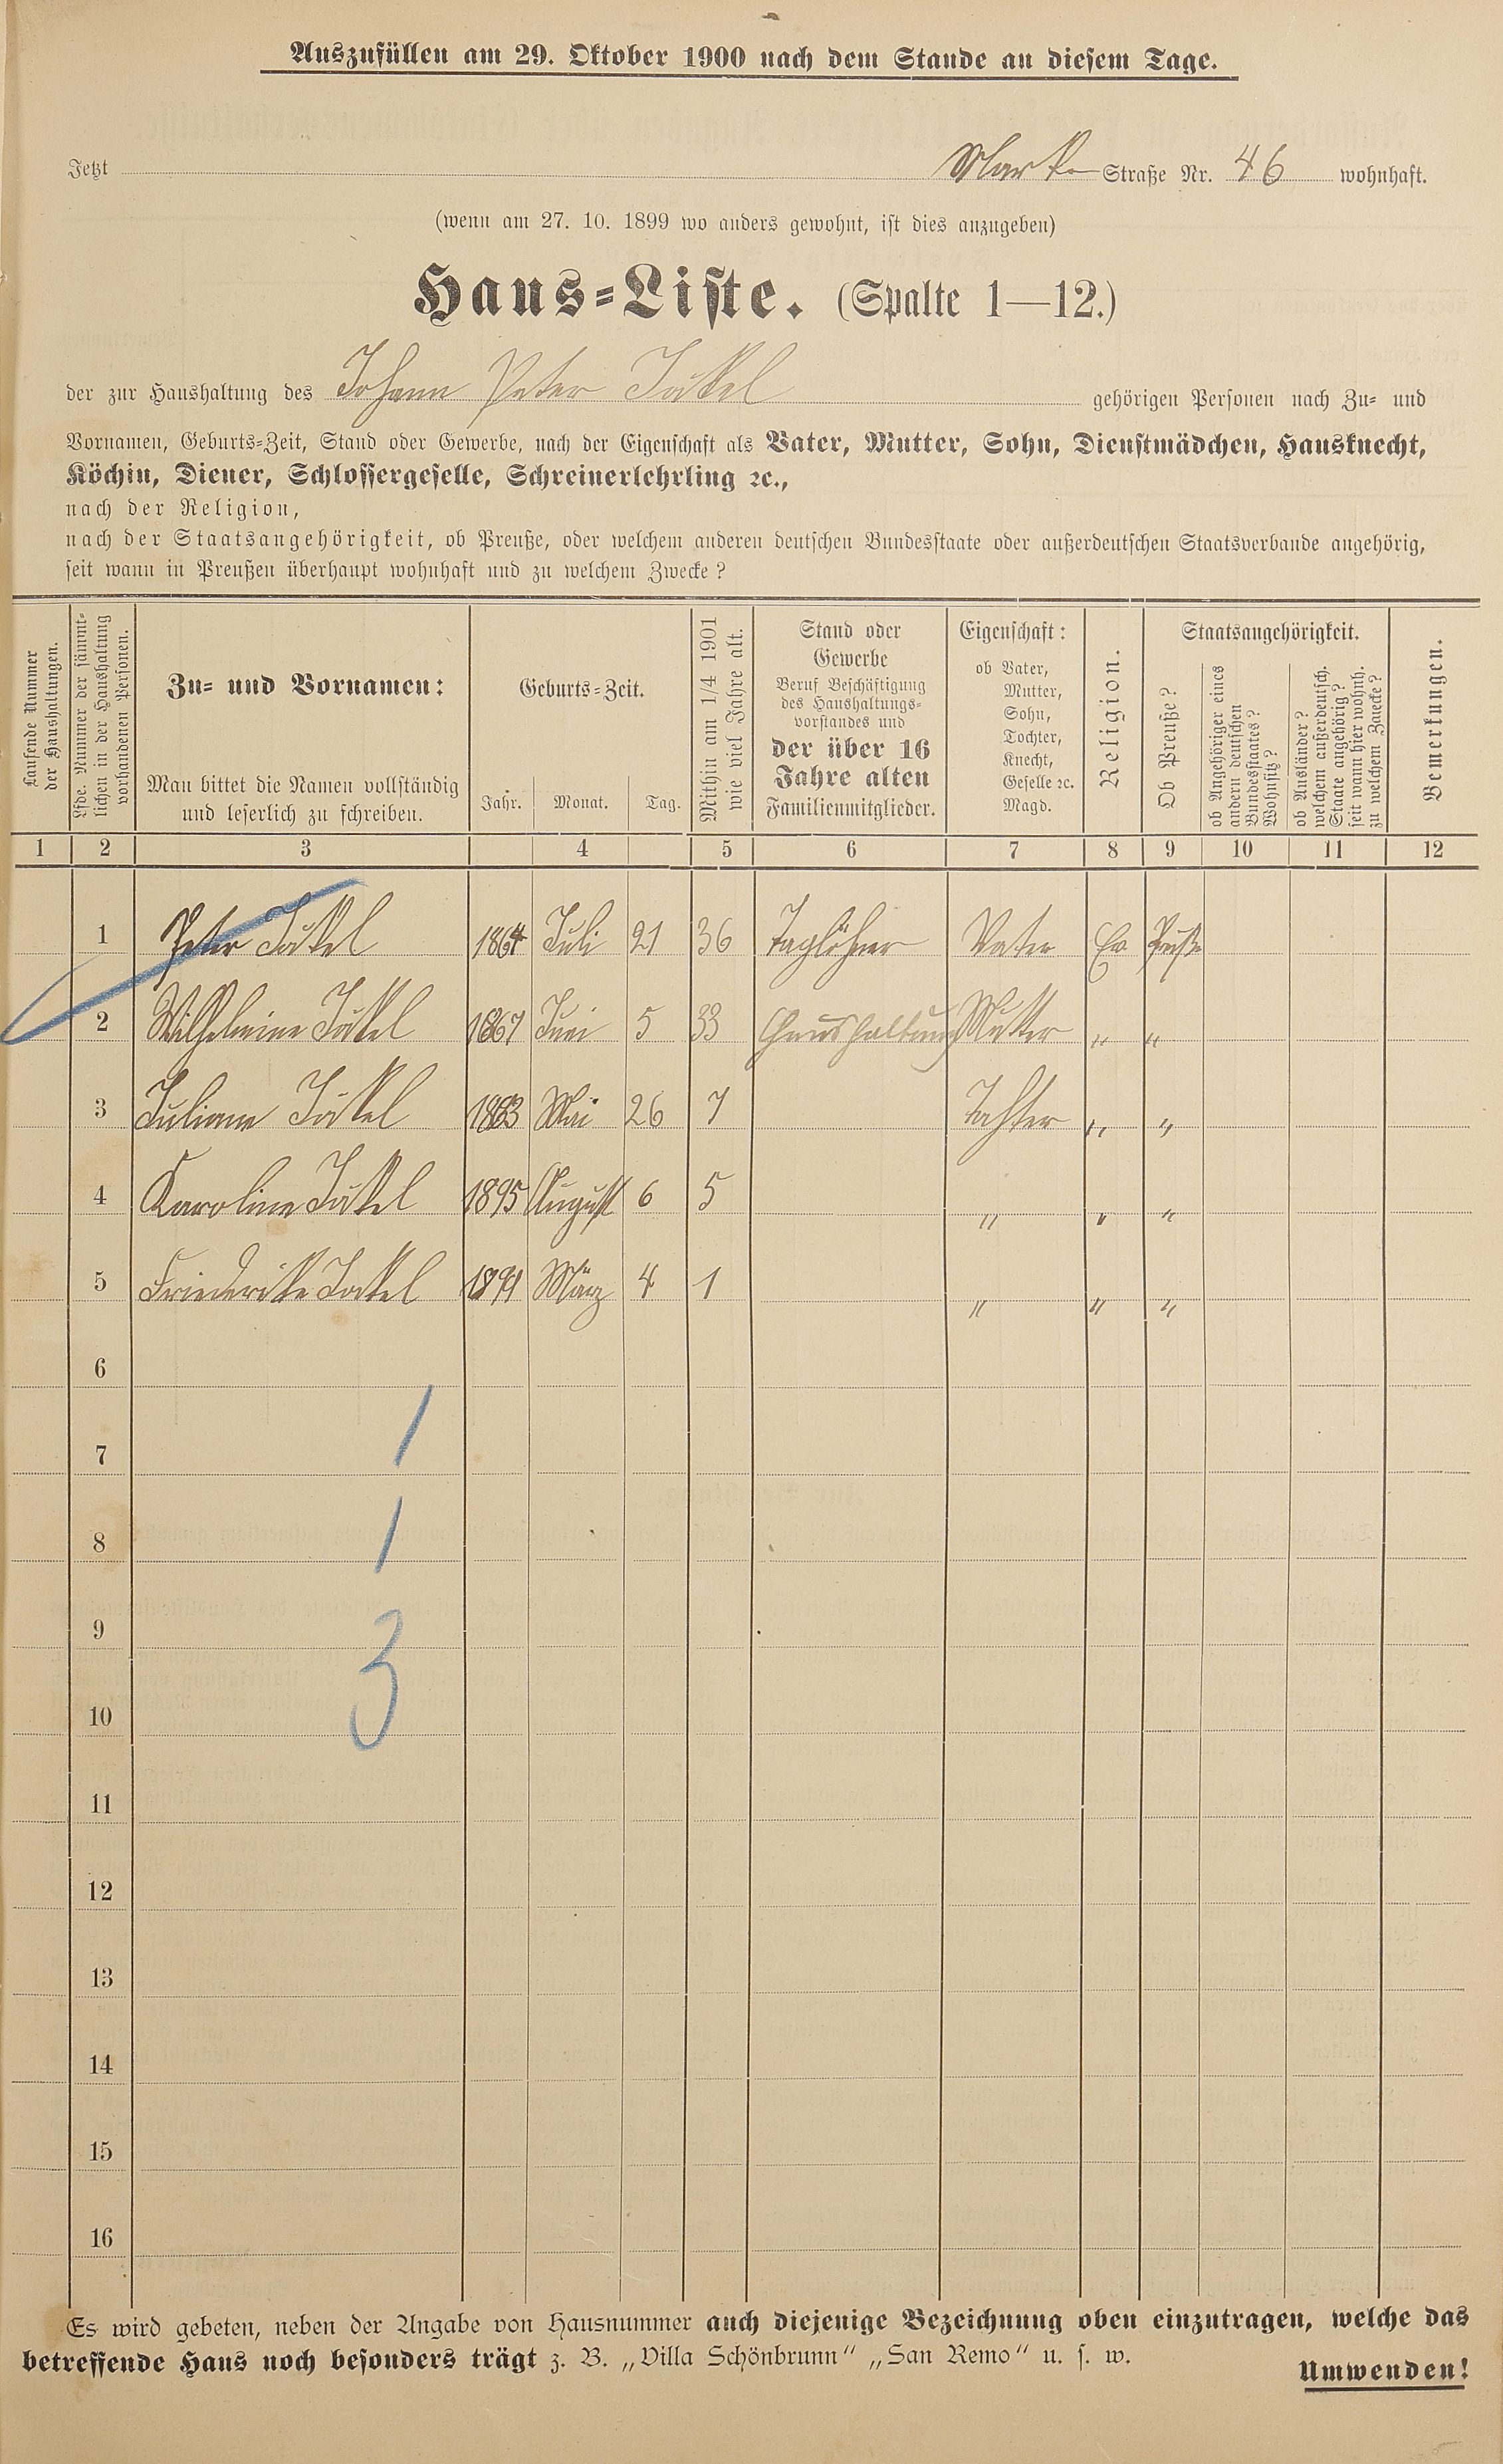 Auszufüllen am 29. Oktober 1900 nach dem Stande an diesem Tage.
Jetzt Markt Straße Nr. 46 wohnhaft.
(wenn am 27. 10. 1899 wo anders gewohnt, ist dies anzugeben)
Haus-Liste. (Spalte 1—12.)
der zur Haushaltung des Johann Peter Jäkel gehörigen Personen nach Zu- und
Vornamen, Geburts-Zeit, Stand oder Gewerbe, nach der Eigenschaft als Vater, Mutter, Sohn, Dienstmädchen, Hausknecht,
Köchin, Diener, Schlossergeselle, Schreinerlehrling ꝛc.,
nach der Religion,
nach der Staatsangehörigkeit, ob Preuße, oder welchem anderen deutschen Bundesstaate oder außerdeutschen Staatsverbande angehörig,
seit wann in Preußen überhaupt wohnhaft und zu welchem Zwecke?
Laufende Nummer
der Haushaltungen.
Lfde. Nummer der sämmt-
lichen in der Haushaltung
vorhandenen Personen.
Zu- und Vornamen:
Man bittet die Namen vollständig
und leserlich zu schreiben.
Geburts-Zeit.
Jahr. Monat. Tag.
Mithin am 1/4 1901
wie viel Jahre alt.
Stand oder
Gewerbe
Beruf Beschäftigung
des Haushaltungs-
vorstandes und
der über 16
Jahre alten
Familienmitglieder.
Eigenschaft:
ob Vater,
Mutter,
Sohn,
Tochter,
Knecht,
Geselle ꝛc.
Magd.
Religion.
Staatsangehörigkeit.
Ob Preuße?
ob Angehöriger eines
andern deutschen
Bundesstaates?
Wohnsitz?
ob Ausländer?
welchem außerdeutsch.
Staate angehörig?
seit wann hier wohnh.
zu welchem Zwecke?
Bemerkungen.
1 2 3 4 5 6 7 8 9 10 11 12
1 Peter Jäkel 1864 Juli 21 36 Taglöhner Vater Ev Preuße
2 Wilhelmine Jäkel 1867 Juni 5 33 Haushaltung Mutter " "
3 Juliane Jäkel 1893 Mai 26 7 Tochter " "
4 Karoline Jäkel 1895 August 6 5 " " "
5 Friederike Jäkel 1899 März 4 1 " " "
6
7 1
8 1
9
10 3
11
12
13
14
15
16
Es wird gebeten, neben der Angabe von Hausnummer auch diejenige Bezeichnung oben einzutragen, welche das
betreffende Haus noch besonders trägt z. B. „Villa Schönbrunn“ „San Remo“ u. s. w.
Umwenden!